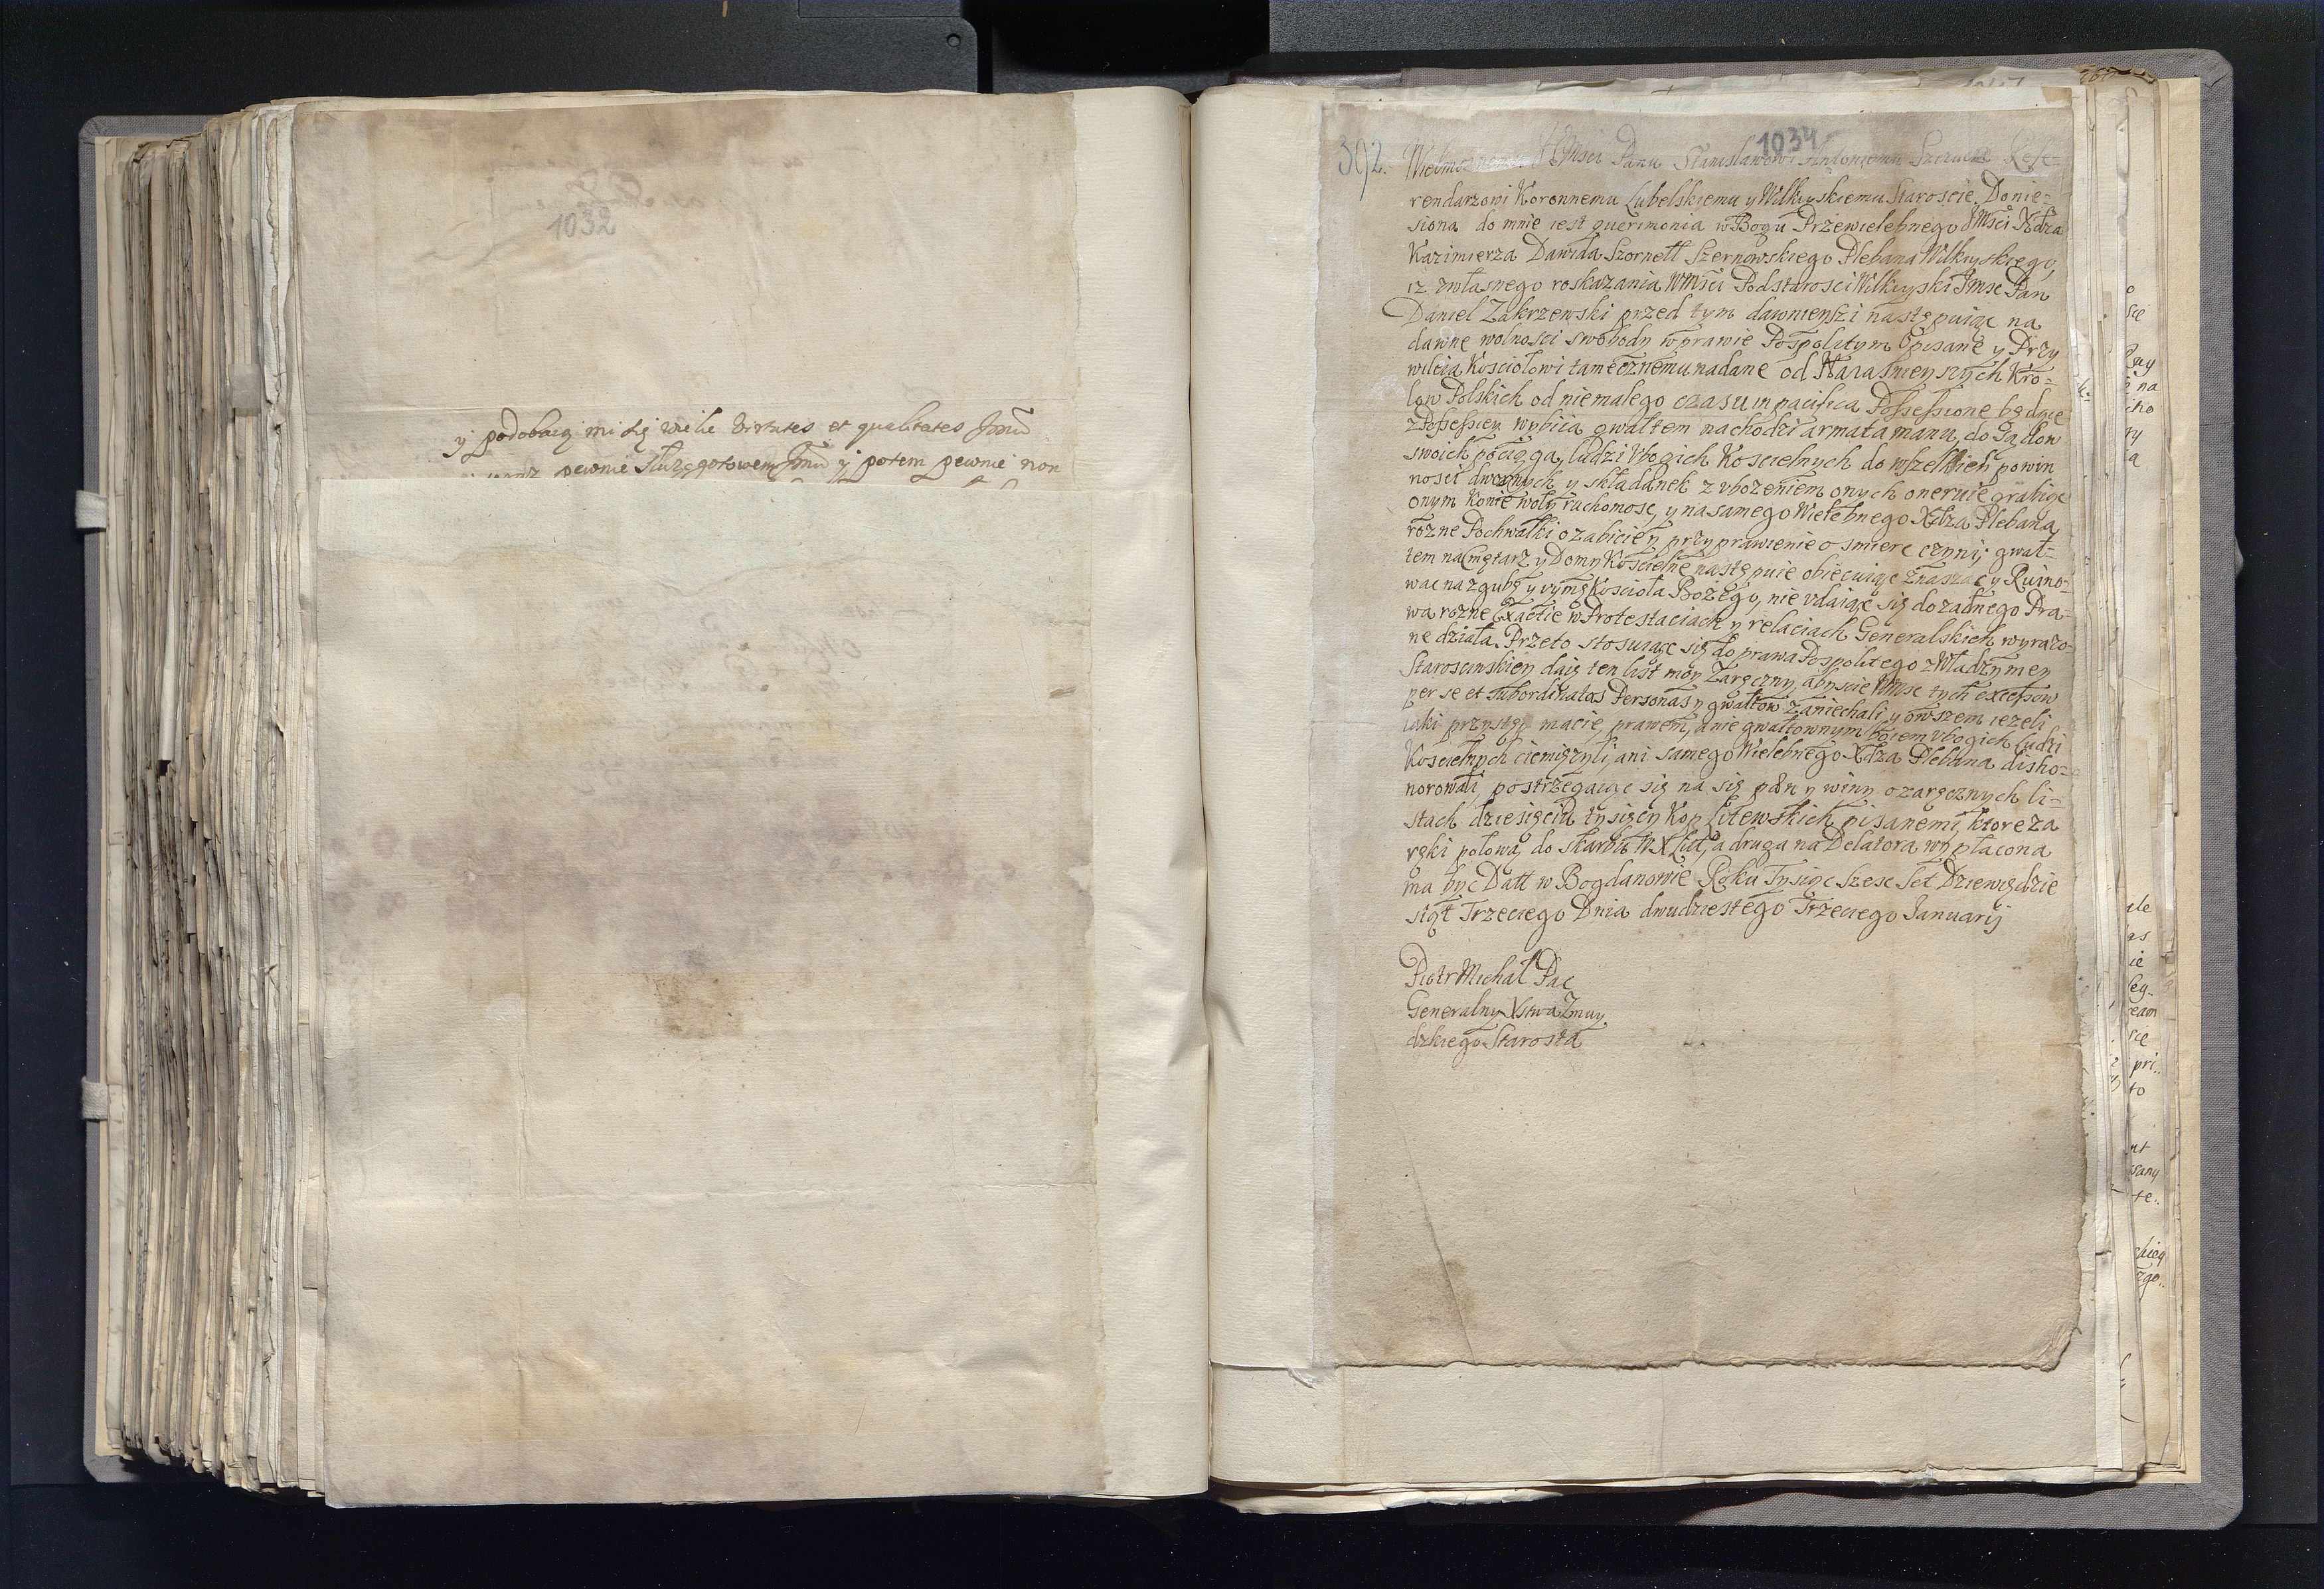 1032
y podobaią mi się wielie virtutes et qualitates Jmci
pewnie służę gotowem Jmci y potem pewnie non
1034
392.
Wielmożnemu JMści Panu Stanisławowi Antoniemu Szczuce Refe-
rendarzowi Koronnemu Lubelskiemu y Wilkiyskiemu Staroscie. Donie-
siona do mnie iest querimonia w Bogu Przewielebnego JMści Xdza
Kazimierza Dawida Szornell Szernowskiego Plebana Wilkiyskiego,
iz zwłasnego roskazania WMści Podstarosci Wilkiyski Jmsc Pan
Daniel Zakrzewski przed tym dawnieyszi następuiąc na
dawne wolnosci swobody w prawie Pospolitym Opisane y Przy
wileia Kosciołowi tamecznemu nadane od Naiaśnieyszych Kro-
low Polskich od niemałego czasu in pacifica Possessione będące
z Possessiey wybiia gwałtem nachodzi armata manu, do Sądow
swoich pociąga, ludzi Vbogich Koscielnych do wszelkich powin
nosci dwornych y składanek z vbożeniem onych oneruie grabiąc
onym Konie woły ruchomosc, y na samego Wielebnego Xdza Plebana
rozne Pochwałki o zabicie y przyprawienie o smierc czyni; gwał-
tem na Cmętarz y Domy Koscielne następuie obiecuiąc znaszac y Ruino-
wac na zgubę y vymę Kościoła Bożego, nie vdaiąc się do żadnego Pra-
wa rozne Exactie w Protestaciach y relaciach Generalskich wyrażo-
ne działa. Przeto stosuiąc się do prawa Pospolitego z Władzy mey
Starosciński̇ey daię ten list moy Zaręczny, abyscie WMsc tych excessow
per se et subordinatas Personas y gwałtow zaniechali, y owszem iezeli
iaki przystęp macie, prawem, a nie gwałtownym boiem vbogich ludzi
Koscielnych ciemiężyli, ani samego Wielebnego Xdza Plebana disho-
norowali, postrzegaiąc się na się pęn y winy o zaręcznych li-
stach dziesięcią tysięcy Kop Litewskich pisanemi, ktore za
ręki połowa, do skarbu W X Litt, a druga na Delatora wypłacona
ma byc Datt w Bogdanowie Roku Tysiąc Szesc Set Dziewędzie
siąt Trzeciego Dnia dwudziestego Trzeciego Januarij
Piotr Michał Pac
Generalny Xstwa Żmuy
dzkiego Starosta